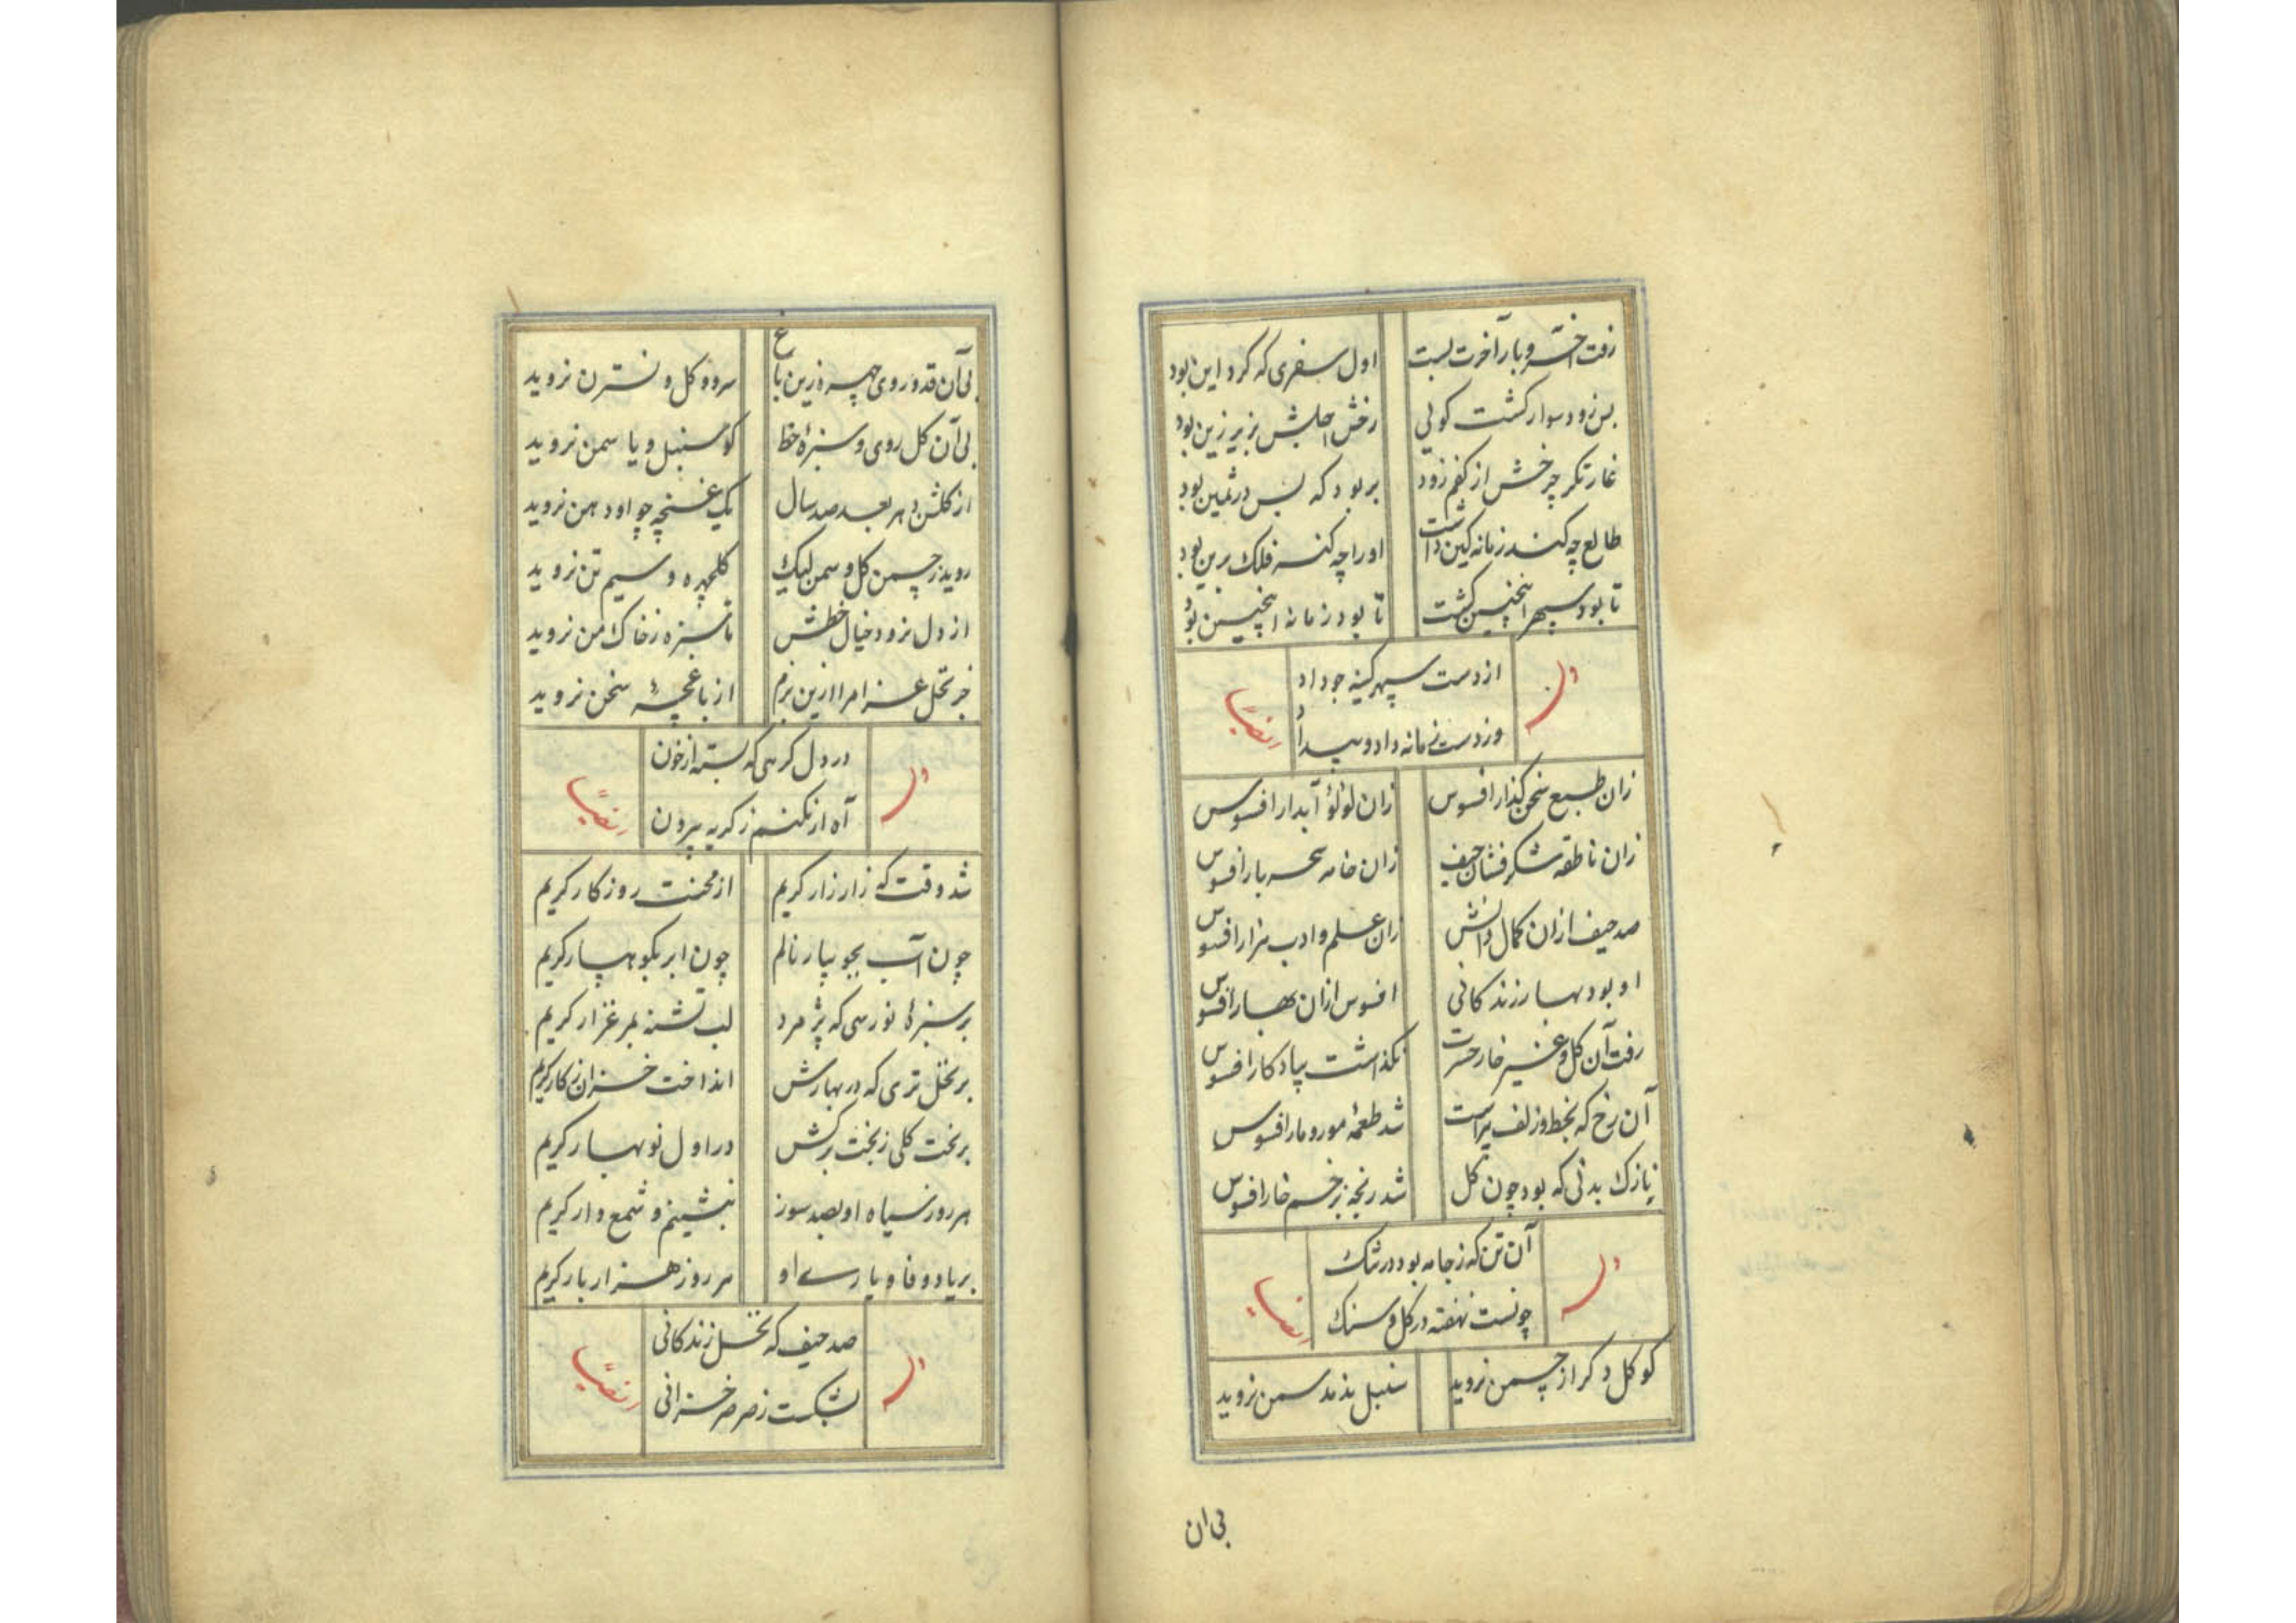 رفت اختر و بار آخرت بست اول سفری که کرد این بود
بس زود سوار کشت کوئی رخش اجلش بزیر زین بود
غارتکر چرخش از کفم زود بربود که بس در ثمین بود
طالع چه کند زمانه کین داشت او را چه کنه فلک برین بود
تا بود سپهر اینچنین کشت تا بود زمانه اینچنین بود
وله از دست سپهر کینه جو داد ایضاً
وز دست زمانه داد و بیداد
زان طبع سخن کذار افسوس زان لؤلؤ آبدار افسوس
زان ناطقه شکر فشان حیف زان خامه سحر بار افسوس
صد حیف ازان کمال دانش زان علم و ادب هزار افسوس
او بود بهار زندکانی افسوس ازان بهار افسوس
رفت آن کل و غیر خار حسرت نکذاشت بیادکار افسوس
آن رخ که بخط و زلف آراست شد طعمهٔ مور و مار افسوس
نازک بدنی که بود چون کل شد رنجه بزخم خار افسوس
وله آن تن که ز جامه بود در تنک ایضاً
چونست نهفته در کل و سنک
کو کل دکر از چمن نروید سنبل ندمد سمن نروید
بی ان
بی آن قد و روی چهره زین باغ سرو و کل و نسترن نروید
بی آن کل روی و سبزهٔ خط کو سنبل و یاسمن نروید
از کلشن دهر بعد صد سال یک غنچه چو او دهن نروید
روید ز چمن کل و سمن لیک کلچهره و سیم تن نروید
از دل نرود خیال خطش تا سبزه ز خاک من نروید
جز نخل عزا مرا ازین بزم از باغچهٔ سخن نروید
وله در دل کرهی که بسته از خون ایضاً
آه ار نکنم ز کریه بیرون
شد وقت که زار زار کریم از محنت روزکار کریم
چون آب بجویبار نالم چون ابر بکوهسار کریم
بر سبزهٔ نورسی که پژمرد لب تشنه بمرغزار کریم
بر نخل تری که در بهارش انداخت خزان ز کار کریم
بر تخت کلی ز بخت برکش در اول نوبهار کریم
هر روز سیاه او بصد سوز بنشینم و شمع وار کریم
بر یاد وفا و یاری او هر روز هزار بار کریم
وله صد حیف که نخل زندکانی ایضاً
بشکست ز صرصر خزانی